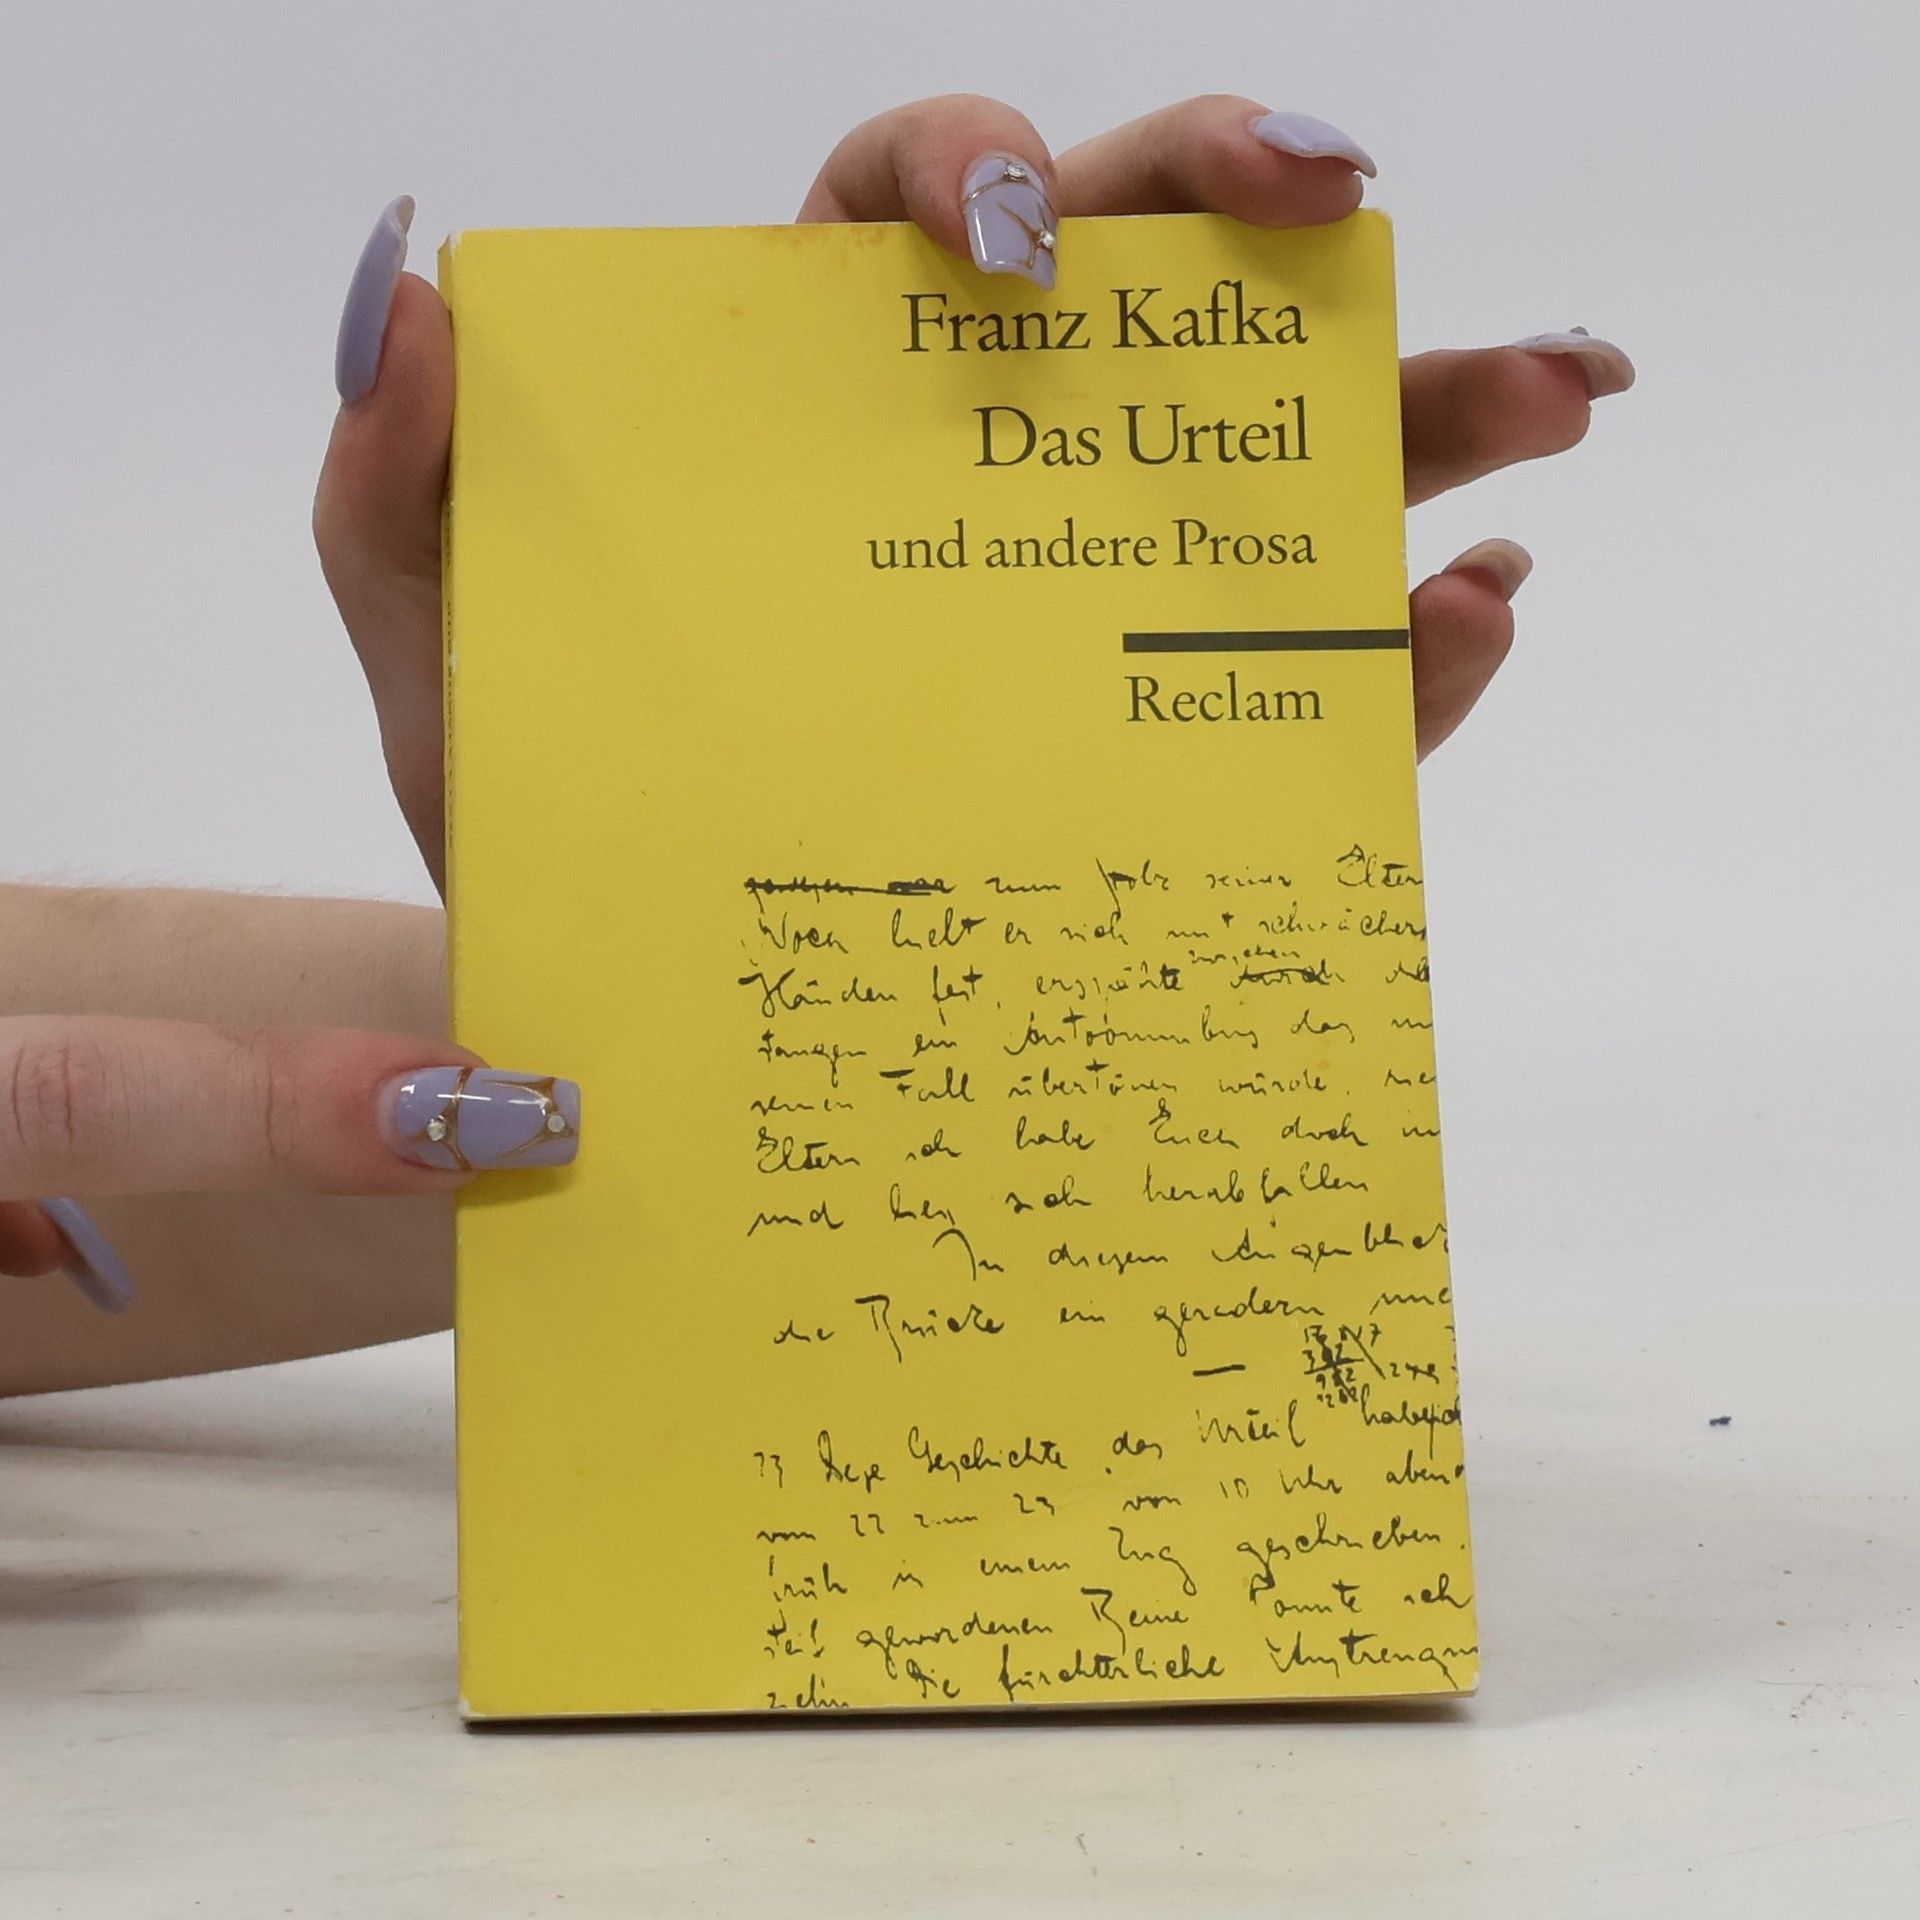 Franz Kafka
Das Urteil
und andere Prosa
Reclam
zum seiner Eltern
Noch hielt er sich mit schwächer
Händen fest, erspähte zwischen
stangen ein das
seinen Fall übertönen würde,
Eltern ich habe Euch doch im
und liess sich herabfallen
In diesem Augenblick
die Brücke ein geradezu
23 Diese Geschichte das Urteil habe ich
vom 22 zum 23 von 10 Uhr abend
früh in einem Zug geschrieben.
steif gewordenen Beine konnte ich
ziehn Die fürchterliche Anstrengun